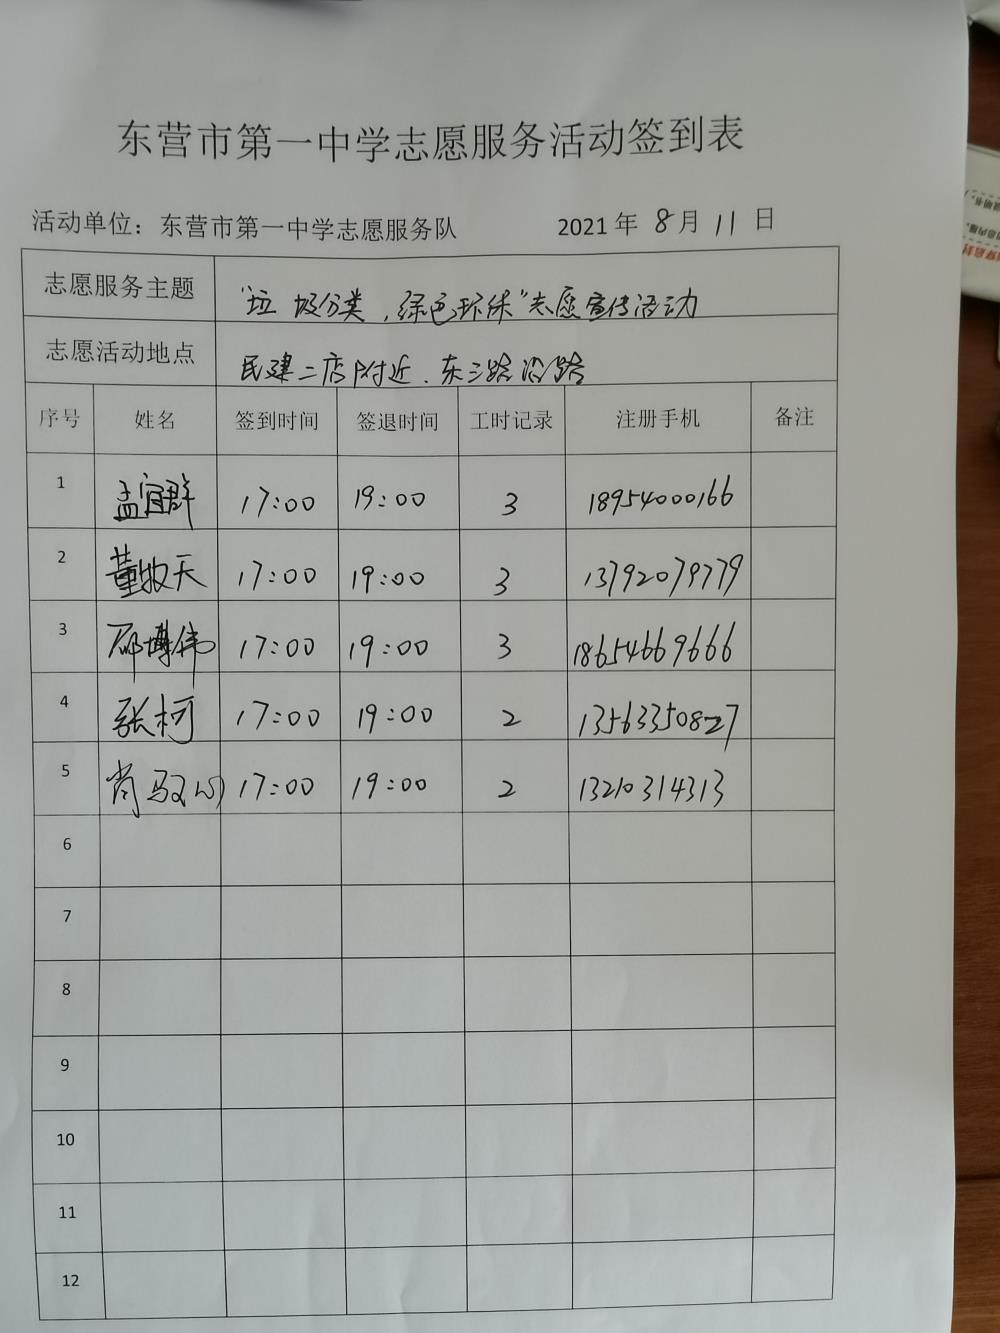 东营市第一中学志愿服务活动签到表
活动单位：东营市第一中学志愿服务队 2021年 8月 11日
志愿服务主题 “垃圾分类，绿色环保”志愿宣传活动
志愿活动地点 民建二店附近．东三路沿路
序号 姓名 签到时间 签退时间 工时记录 注册手机 备注
1 孟宜群 17:00 19:00 3 18954000166
2 董牧天 17:00 19:00 3 13792079779
3 邵博伟 17:00 19:00 3 18654669666
4 张柯 17:00 19:00 2 13563350827
5 肖 17:00 19:00 2 13210314313
6
7
8
9
10
11
12